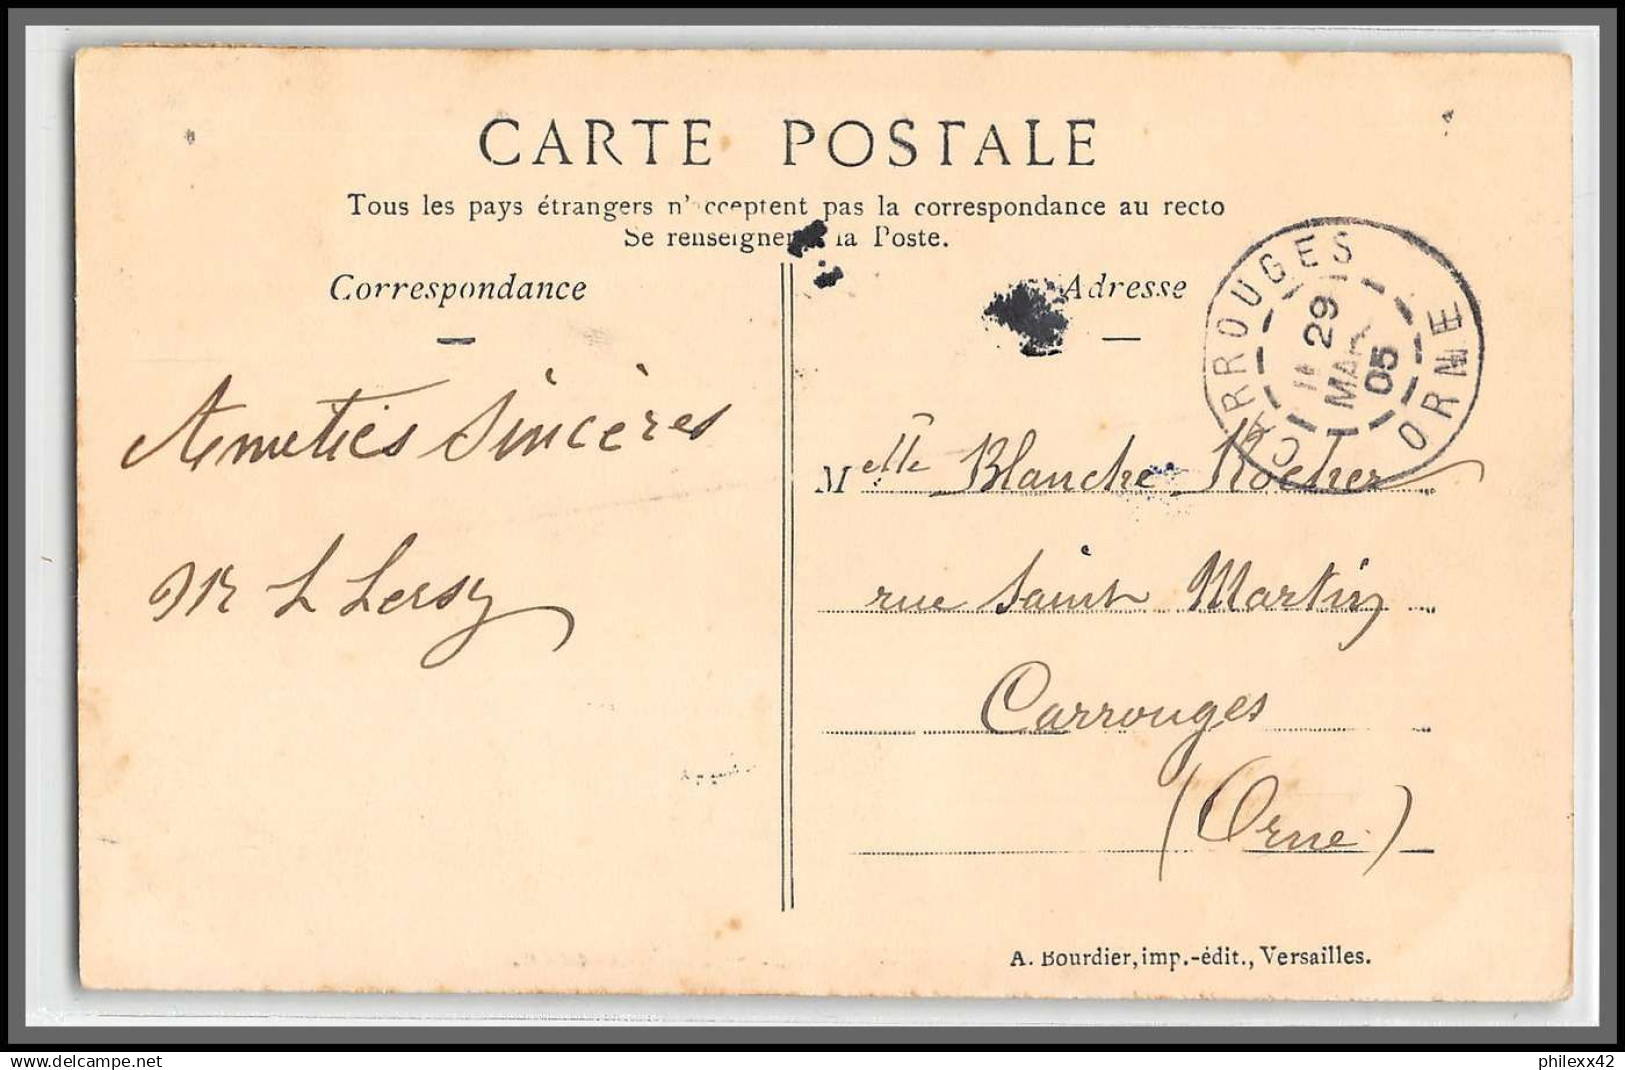 CARTE POSTALE
Tous les pays étrangers n'acceptent pas la correspondance au recto
Se renseigner à la Poste.
Correspondance
Adresse
CARROUGES ORNE
29
MARS
05
Amitiés Sincères
M L Lersy
Melle Blanche Rocher
rue Saint Martin
Carrouges
(Orne)
A. Bourdier, imp.-édit., Versailles.
www.delcampe.net
philexx42